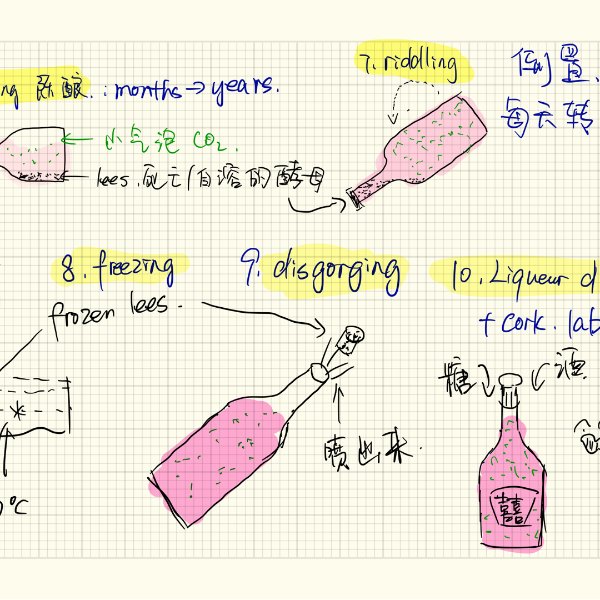 ng 陈酿.: months → years.
7. riddling
倒置.
每天转
← 小气泡 CO₂.
← lees. 死亡/自溶的酵母
8. freezing
9. disgorging
10. Liqueur d
+ cork. lab
frozen lees.
糖
酒
喷出来.
0°C
囍